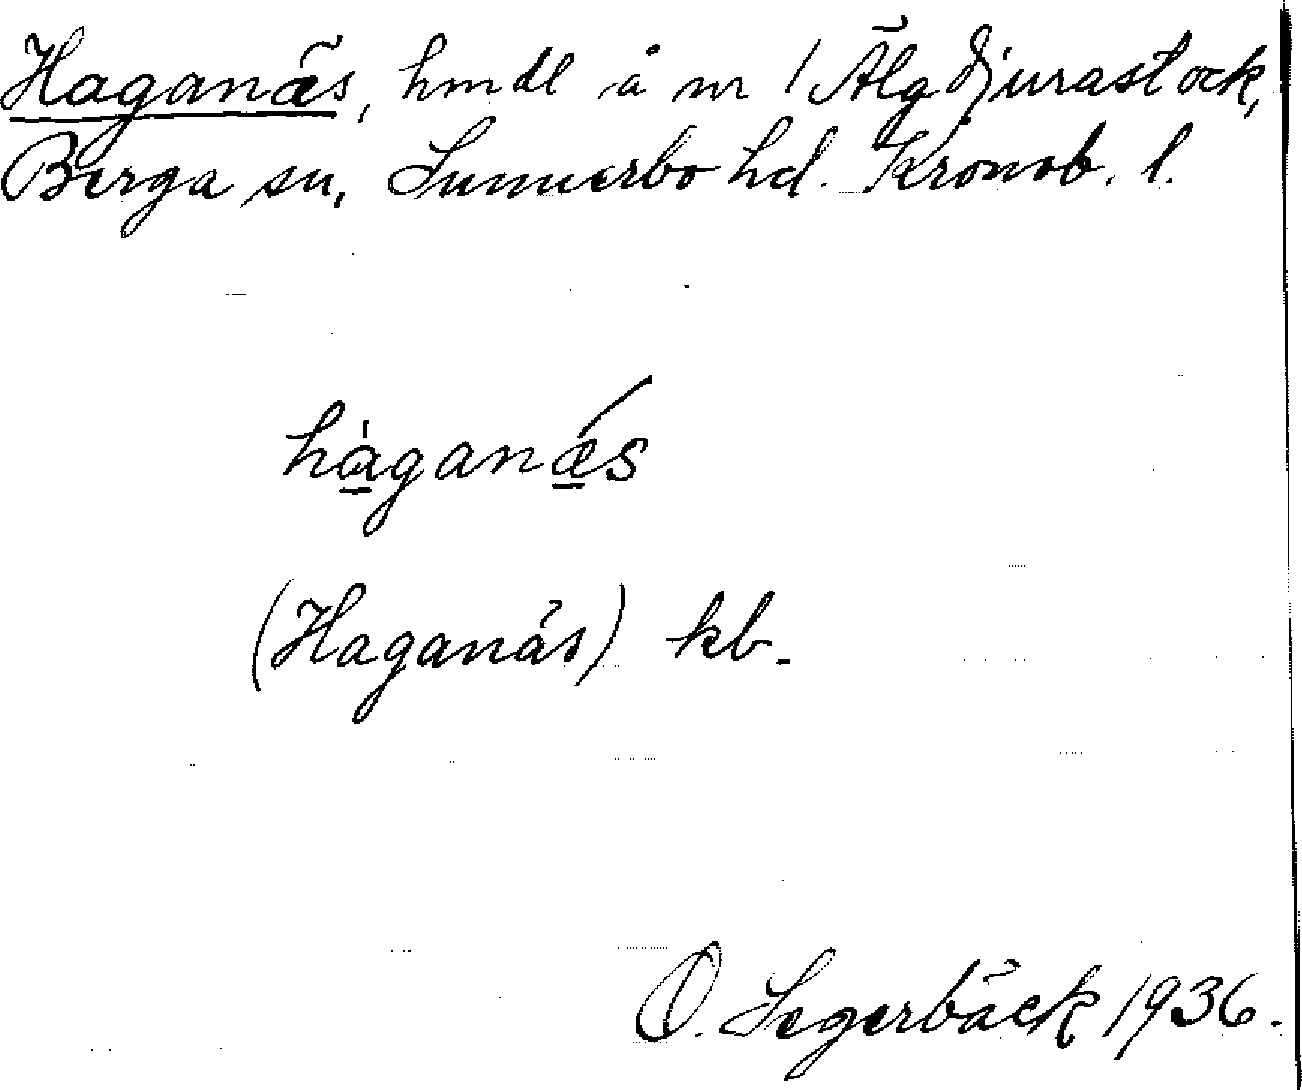 Haganäs, hmdl å nr 1 Älgdjurastock,
Berga sn, Sunnerbo hd. Kronob. l.
hàganǽs
(Haganäs) kb.
O. Segerbäck 1936.